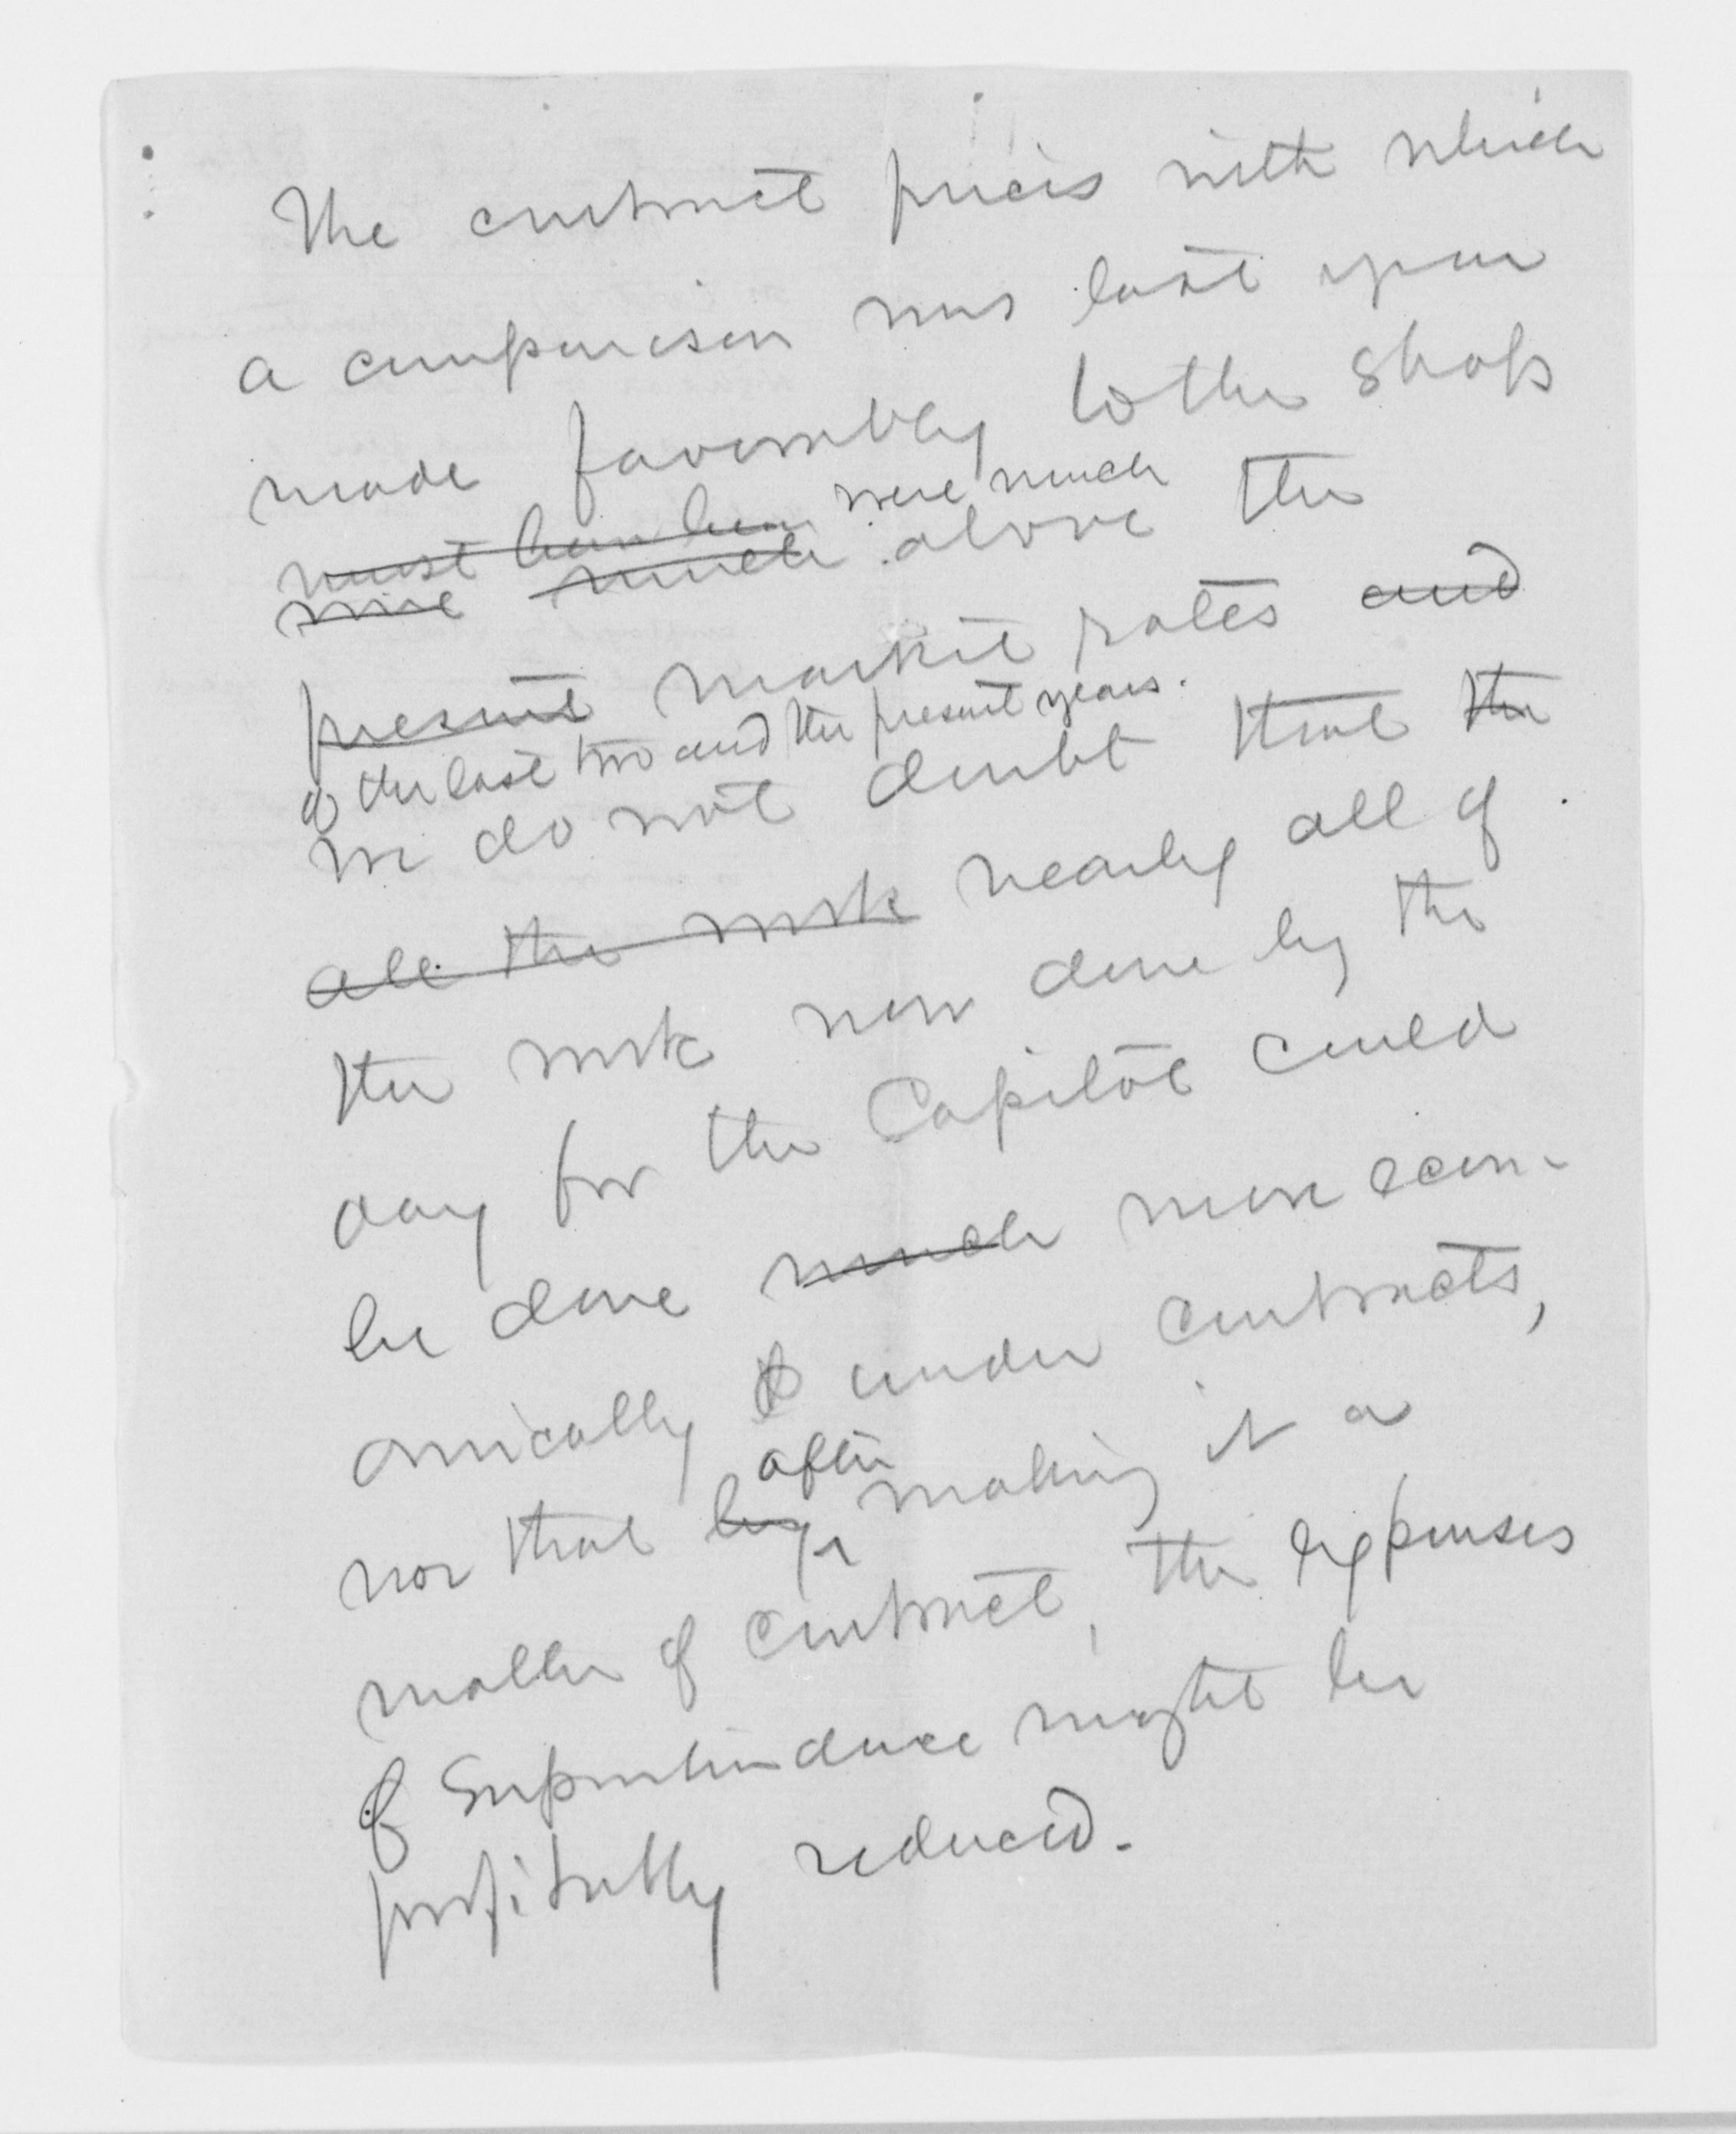 The contract prices with which
a comparison was last year
made favorably to the shops
must have been were much
were much above the
present market rates and
of the last two and the present years.
We do not doubt that the
all the work nearly all of
the work now done by the
day for the Capitol could
be done much more econ-
omically under contracts,
nor that by after making it a
matter of contract, the expenses
of Superintendence might be
profitably reduced.